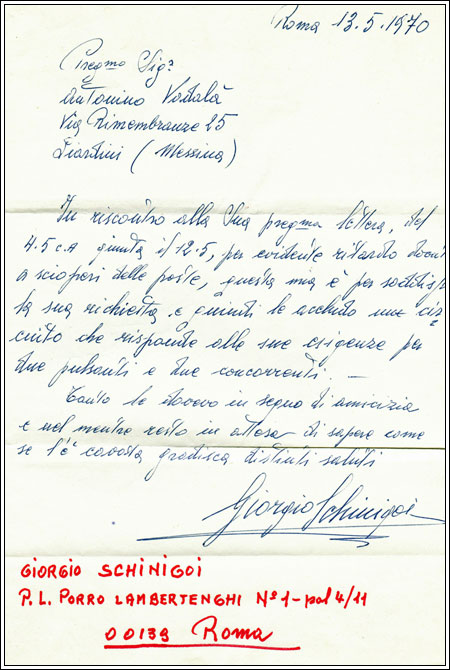 Roma 13.5.1970
Pregmo Sig?
Antonino Vadalà
Via Rimembranze 25
Giardini (Messina)
In riscontro alla Sua pregma lettera, del
4.5 c.a giunta il 12.5, per evidente ritardo dovuti
a scioperi delle poste, questa mia è per soddisf
la sua richiesta, e quindi le accludo uno cir
cuito che risponde alle sue esigenze per
due pulsanti e due concorrenti. —
Tanto le dovevo in segno di amicizia
e nel mentre resto in attesa di sapere come
se l'è cavata gradisca distinti saluti
Giorgio Schinigoi
GIORGIO SCHINIGOI
P.L. PORRO LAMBERTENGHI Nº 1 - pal 4/11
00139 Roma